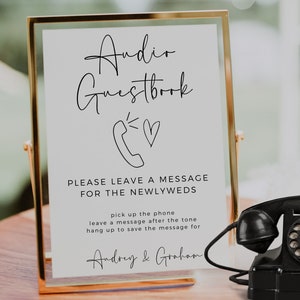 Audio
Guestbook
PLEASE LEAVE A MESSAGE
FOR THE NEWLYWEDS
pick up the phone
leave a message after the tone
hang up to save the message for
Audrey & Graham